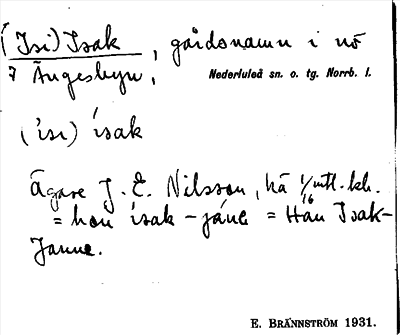 (Isi) Isak, gårdsnamn i nö
7 Ängesbyn,
Nederluleå sn. o. tg. Norrb. l.
(ısı) ísak
Ägare J. E. Nilsson, hä 1/16 mtl. kh.
= han ísak-jánɛ = Han Isak-
Janne.
E. BRÄNNSTRÖM 1931.